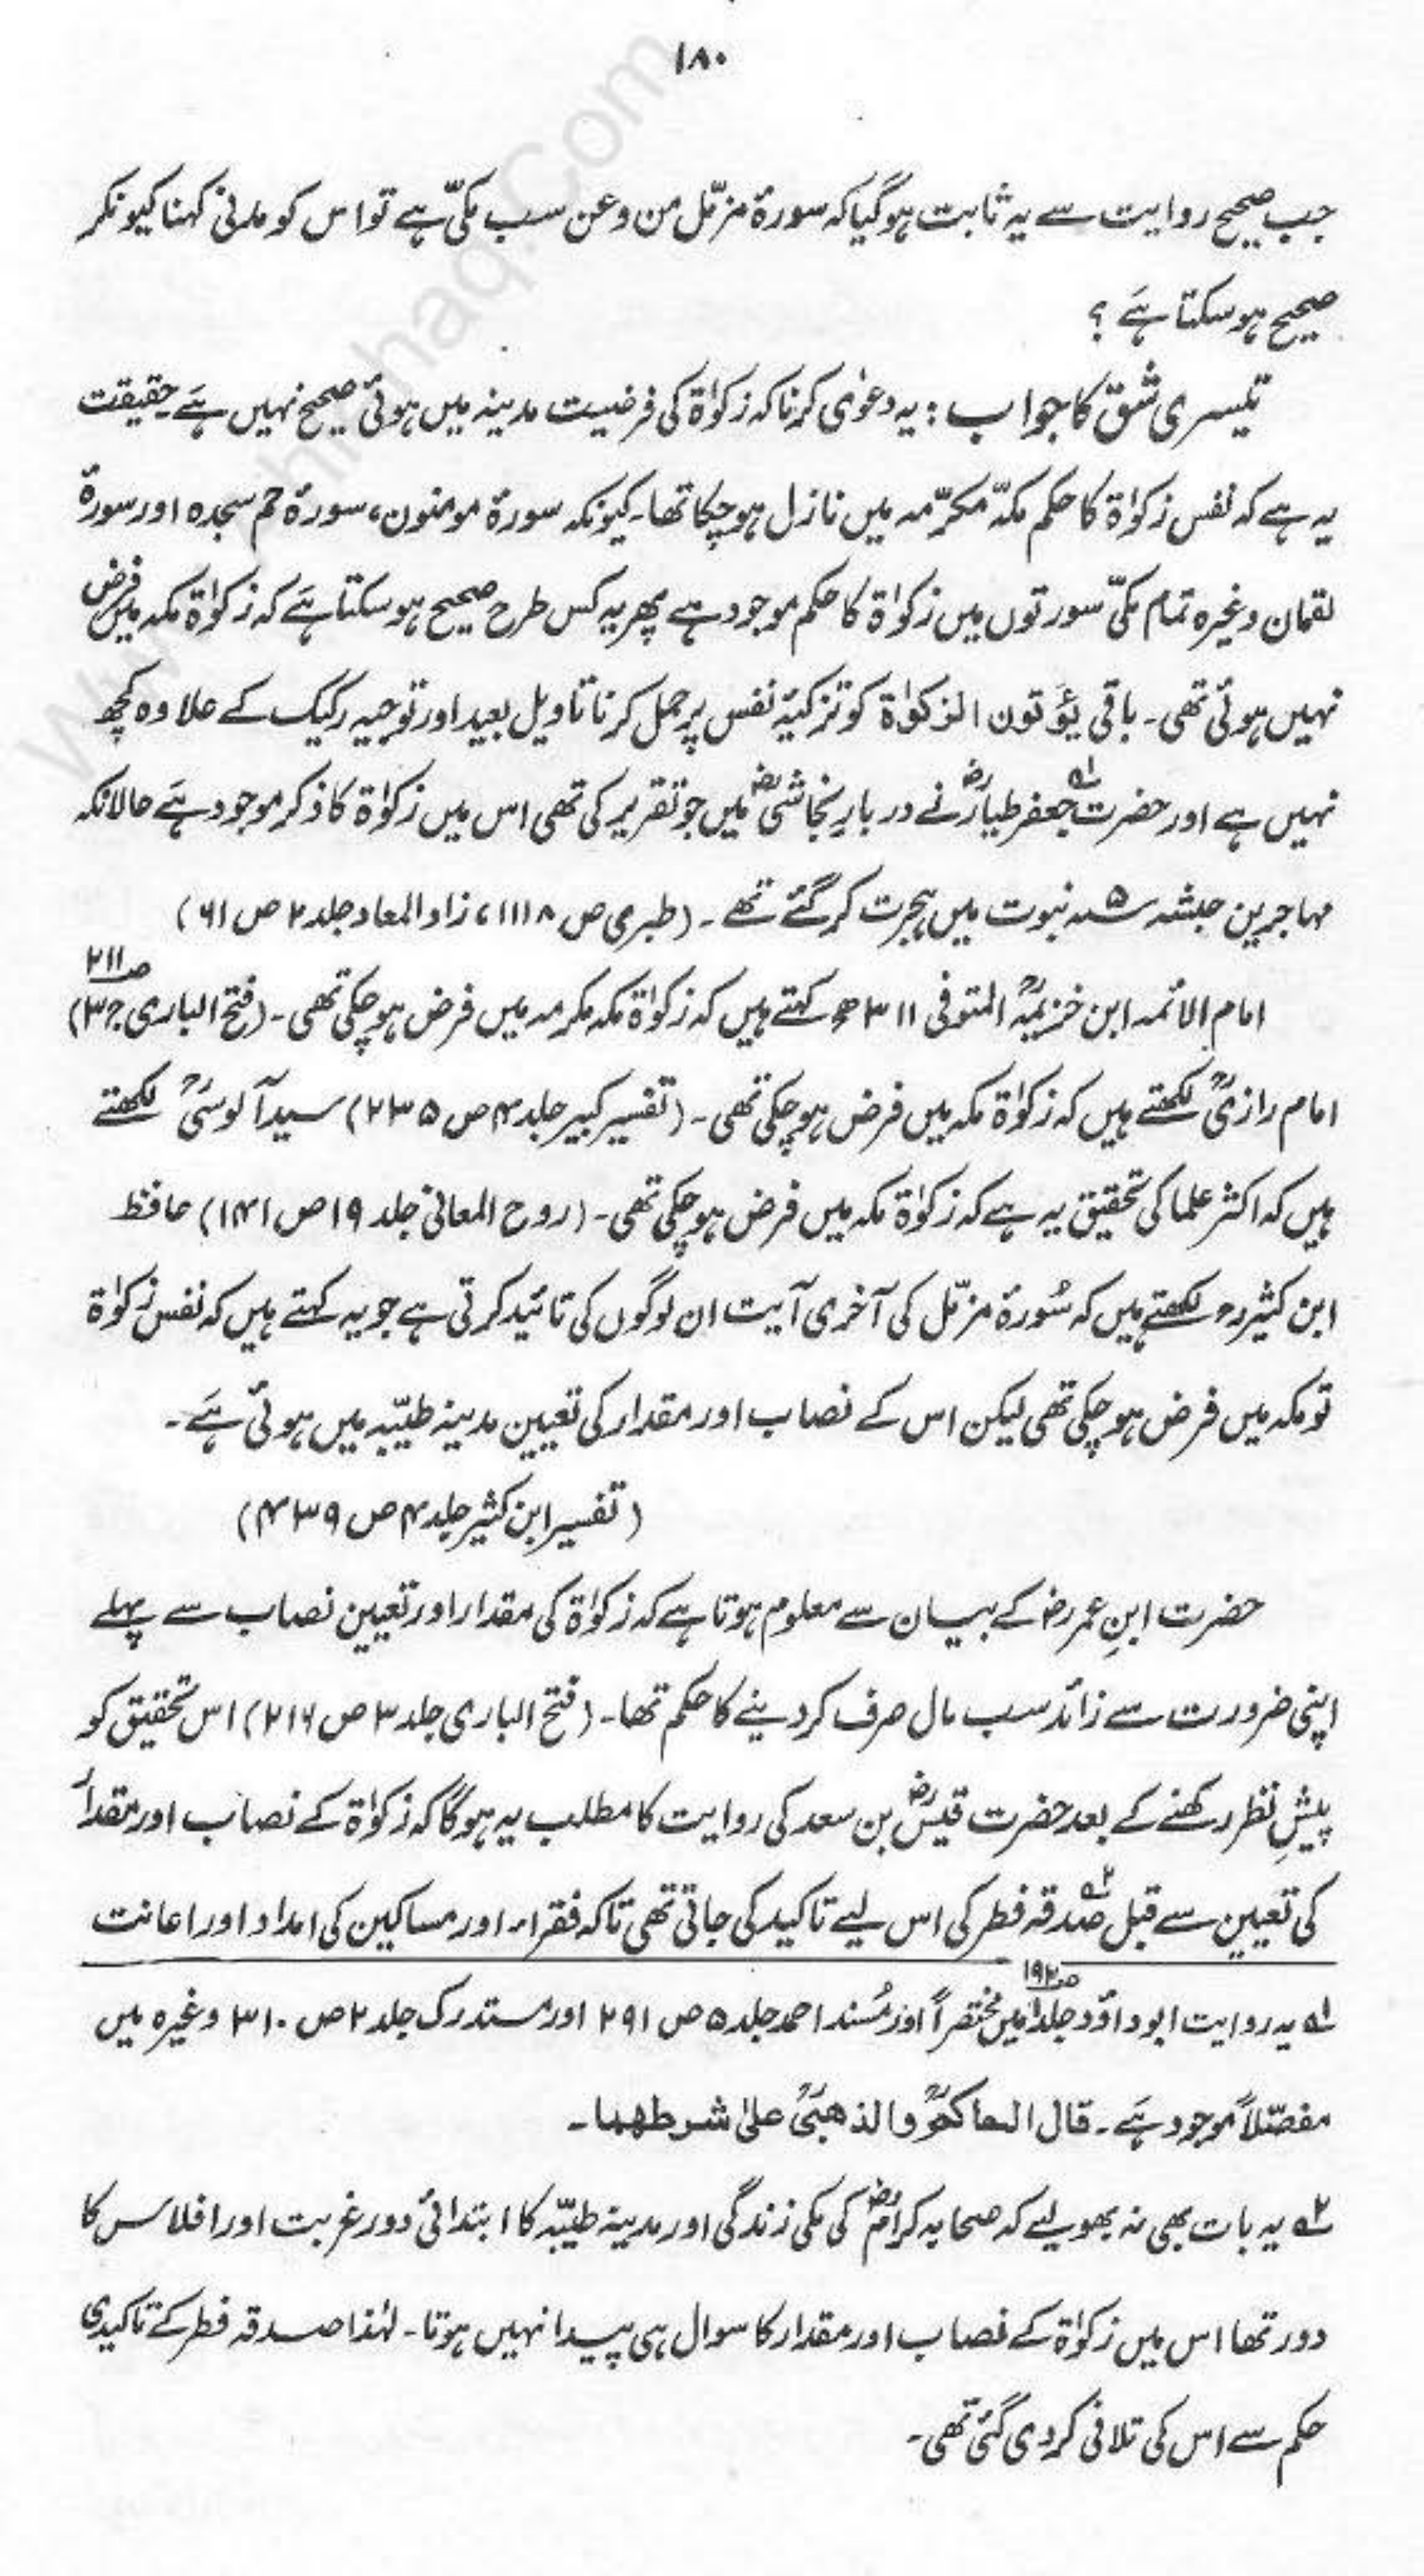 ۱۸۰
جب صحیح روایت سے یہ ثابت ہوگیا کہ سورۂ مزمّل من وعن سب مکّی ہے تو اس کو مدنی کہنا کیونکر
صحیح ہو سکتا ہے ؟
تیسری شق کا جواب : یہ دعوٰی کرنا کہ زکوٰۃ کی فرضیت مدینہ میں ہوئی صحیح نہیں ہے حقیقت
یہ ہے کہ نفس زکوٰۃ کا حکم مکّہ مکرّمہ میں نازل ہو چکا تھا۔ کیونکہ سورۂ مومنون، سورۂ حٰم سجدہ اور سورۂ
لقمان وغیرہ تمام مکّی سورتوں میں زکوٰۃ کا حکم موجود ہے پھر یہ کس طرح صحیح ہو سکتا ہے کہ زکوٰۃ مکہ میں فرض
نہیں ہوئی تھی۔ باقی یؤتون الزکوٰۃ کو تزکیۂ نفس پر حمل کرنا تاویل بعید اور توجیہ رکیک کے علاوہ کچھ
نہیں ہے اور حضرت ؎۱ جعفر طیارؓ نے دربارِ نجاشیؓ میں جو تقریر کی تھی اس میں زکوٰۃ کا ذکر موجود ہے حالانکہ
مہاجرین حبشہ ۵؁ نبوت میں ہجرت کر گئے تھے۔ (طبری ص ۱۱۱۸، زاد المعاد جلد ۲ ص ۶۱)
امام الائمہ ابن خزیمہؒ المتوفی ۳۱۱ھ کہتے ہیں کہ زکوٰۃ مکہ مکرمہ میں فرض ہو چکی تھی۔ (فتح الباری ج۳ ص۲۱۱)
امام رازیؒ لکھتے ہیں کہ زکوٰۃ مکہ میں فرض ہو چکی تھی۔ (تفسیر کبیر جلد ۴ ص ۲۳۵) سید آلوسیؒ لکھتے
ہیں کہ اکثر علما کی تحقیق یہ ہے کہ زکوٰۃ مکہ میں فرض ہو چکی تھی۔ (روح المعانی جلد ۱۹ ص ۱۴۱) حافظ
ابن کثیرؒ لکھتے ہیں کہ سُورۂ مزمّل کی آخری آیت ان لوگوں کی تائید کرتی ہے جو یہ کہتے ہیں کہ نفس زکوٰۃ
تو مکہ میں فرض ہو چکی تھی لیکن اس کے نصاب اور مقدار کی تعیین مدینہ طیّبہ میں ہوئی ہے۔
(تفسیر ابن کثیر جلد ۴ ص ۴۳۹)
حضرت ابنِ عمرؓ کے بیان سے معلوم ہوتا ہے کہ زکوٰۃ کی مقدار اور تعیین نصاب سے پہلے
اپنی ضرورت سے زائد سب مال صرف کر دینے کا حکم تھا۔ (فتح الباری جلد ۳ ص ۲۱۶) اس تحقیق کو
پیشِ نظر رکھنے کے بعد حضرت قیسؓ بن سعد کی روایت کا مطلب یہ ہوگا کہ زکوٰۃ کے نصاب اور مقدار
کی تعیین سے قبل ؎۲ صدقہ فطر کی اس لیے تاکید کی جاتی تھی تاکہ فقراء اور مساکین کی امداد اور اعانت
؎۱ یہ روایت ابوداؤد جلد۱ ص۱۹۲ میں مختصراً اور مُسند احمد جلد ۵ ص ۲۹۱ اور مستدرک جلد ۲ ص ۳۱۰ وغیرہ میں
مفصّلاً موجود ہے۔ قال الحاکمؒ والذھبیؒ علیٰ شرطھما۔
؎۲ یہ بات بھی نہ بھولیے کہ صحابہ کرامؓ کی مکی زندگی اور مدینہ طیّبہ کا ابتدائی دور غربت اور افلاس کا
دور تھا اس میں زکوٰۃ کے نصاب اور مقدار کا سوال ہی پیدا نہیں ہوتا۔ لہٰذا صدقہ فطر کے تاکیدی
حکم سے اس کی تلافی کر دی گئی تھی۔